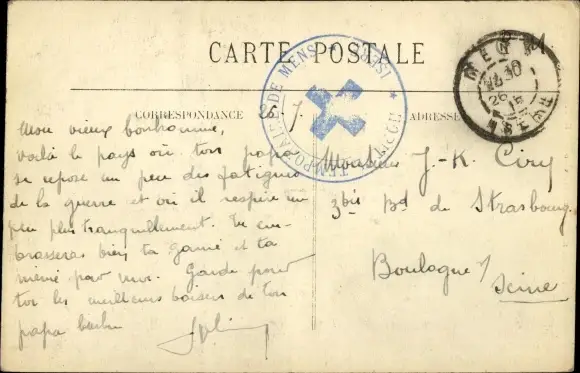 CARTE POSTALE
CORRESPONDANCE
ADRESSE
HÔPITAL TEMPORAIRE DE MENS (ISÈRE)
MENS
ISÈRE
Mon vieux bonhomme,
voilà le pays où ton papa
se repose un peu des fatigues
de la guerre et où il respire un
peu plus tranquillement. Tu em-
brasseras bien ta
et ta
mémé pour moi. Garde pour
toi les meilleurs baisers de ton
papa
Monsieur J.-K. Ciry
3bis Bd de Strasbourg
Boulogne s/
Seine